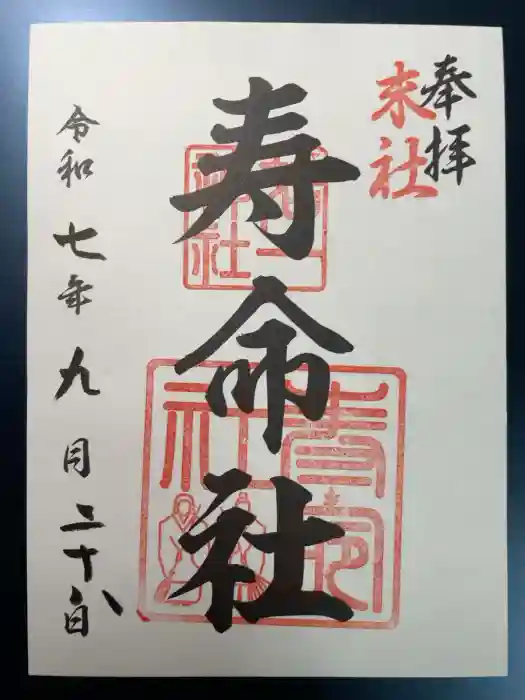 奉拝
末社
寿命社
令和七年九月二十日